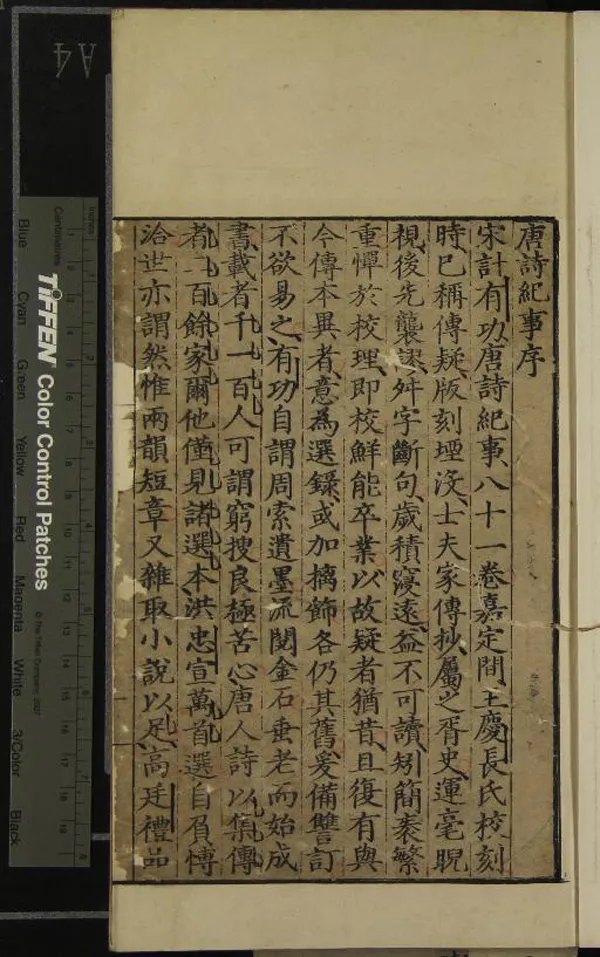 唐詩紀事序
宋計有功唐詩紀事八十一卷嘉定間王慶長氏校刻
時已稱傳疑版刻堙沒士夫家傳抄屬之胥史運毫睨
視後先襲謬舛字斷句歲積寖遠益不可讀矧簡袠繁
重憚於校理即校鮮能卒業以故疑者猶昔且復有與
今傳本異者意為選錄或加摛飾各仍其舊爰備讐訂
不欲易之有功自謂周索遺墨流閱金石垂老而始成
書載者千一百人可謂窮搜良極苦心唐人詩以集傳
者一百餘家爾他僅見諸選本洪忠宣萬首選自負愽
洽世亦謂然惟兩韻短章又雜取小說以足高廷禮品
A4
TIFFEN Color Control Patches
© The Tiffen Company, 2007
Inches 1 2 3 4 5 6 7 8
Centimetres 1 2 3 4 5 6 7 8 9 10 11 12 13 14 15 16 17 18 19
Blue Cyan Green Yellow Red Magenta White 3/Color Black